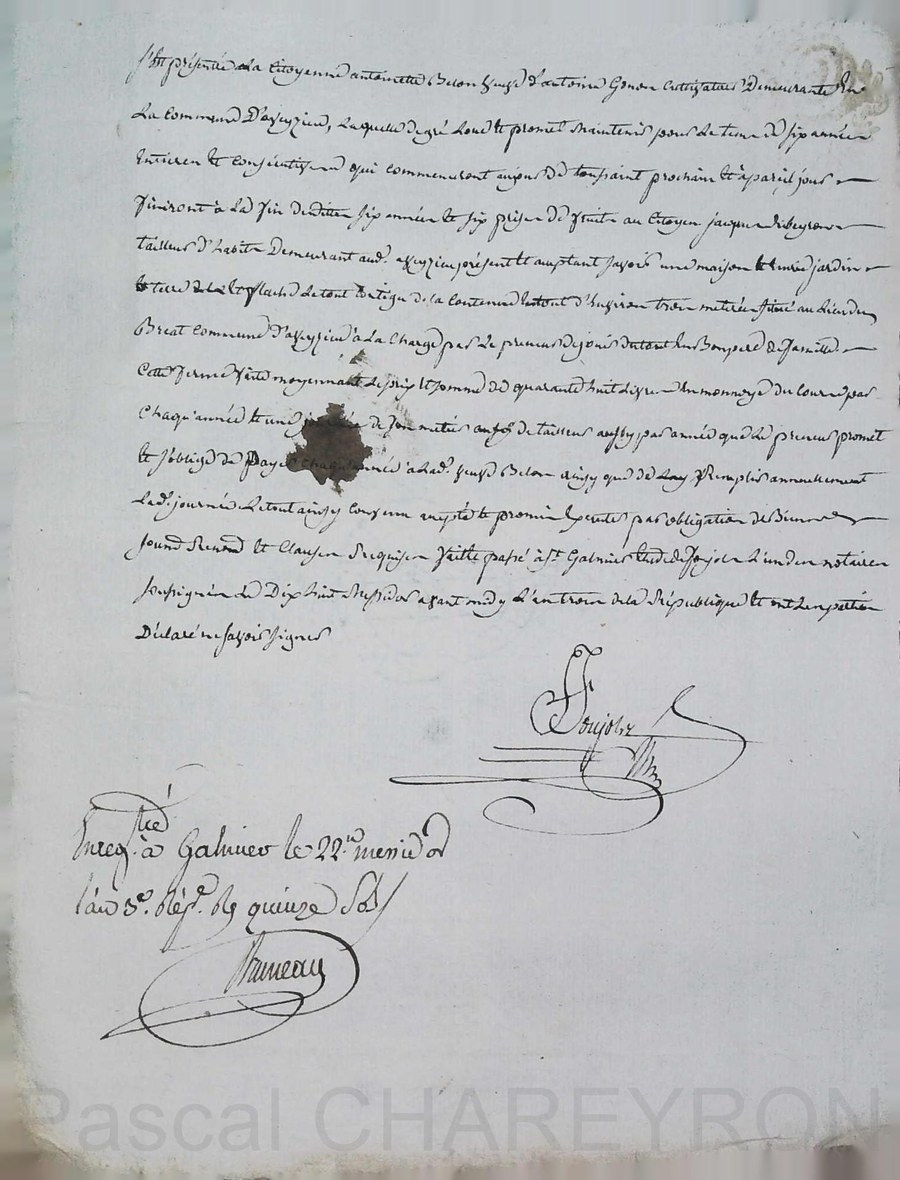 S'est présentée la Citoyenne antoinette Belon veuve d'antoine Gonon Cultivateur Demeurante En
La Commune D'aveyzieu, Laquelle de gré Loue et promet maintenir pour Le tems de six années
Entieres et Consécutives qui commenceront au jour de toussaint prochain et à pareil jour
finiront à La fin desdittes six années et six prises de fruits au Citoyen jacques ribeyron
tailleur d'habits Demeurant aud. aveyzieu présent et acceptant savoir une maison et jardin
et terre le tout Contigu de la Contenue Entout d'Environ trois metérées situé au Lieu du
Breat Commune D'aveyzieu à La Charge par Le preneur de jouir du tout En Bon pere de famille.
Cette ferme faite moyennant Le prix et somme de quarante huit Livres En monnoye du Cours par
Chaqu'année et une journée de son metier de tailleur aussy par année que Le preneur promet
et s'oblige de Payer Chaqu'année à Lad. veuve Belon ainsy que de Remplir annuellement
Lad. journée Le tout ainsy Convenu accepté et promis Executer par obligation de Biens
soumis Renond et Clauses Requises fait et passé à St. Galmier Etude de Ponjolz L'un des notaires
soussignés Le Dix huit Messidor avant midy L'an trois de la République et ont Les parties
Déclaré ne savoir signer
Enregtré à Galmier le 22.me messidor
l'an 3e. rép.e rç quinze sols
Bruneau
Pascal CHAREYRON